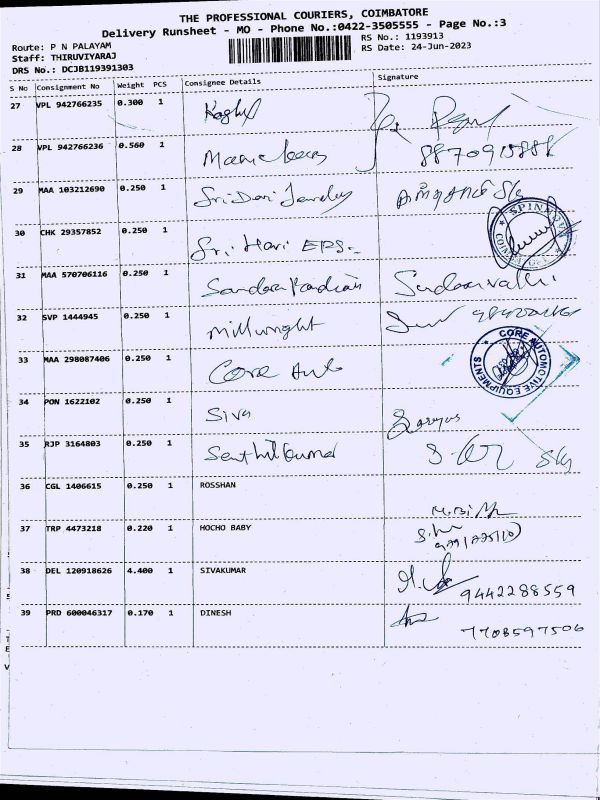 THE PROFESSIONAL COURIERS, COIMBATORE
Delivery Runsheet - MO - Phone No.:0422-3505555 - Page No.:3
Route: P N PALAYAM
Staff: THIRUVIYARAJ
DRS No.: DCJB119391303
RS No.: 1193913
RS Date: 24-Jun-2023
S No Consignment No Weight PCS Consignee Details Signature
27 VPL 942766235 0.300 1
28 VPL 942766236 0.560 1
29 MAA 103212690 0.250 1 Sri Devi Jewelry
30 CHK 29357852 0.250 1 Sri Hari EPS- SPINN
31 MAA 570706116 0.250 1 Sundara Pandian Sundaravalli
32 SVP 1444945 0.250 1 Millwright
33 MAA 298087406 0.250 1 Core Auto CORE AUTOMOTIVE EQUIPMENTS
34 PON 1622102 0.250 1 Siva
35 RJP 3164803 0.250 1 Senthilkumar
36 CGL 1406615 0.250 1 ROSSHAN
37 TRP 4473218 0.220 1 HOCHO BABY
38 DEL 120918626 4.400 1 SIVAKUMAR 9442288559
39 PRD 600046317 0.170 1 DINESH 7708597506